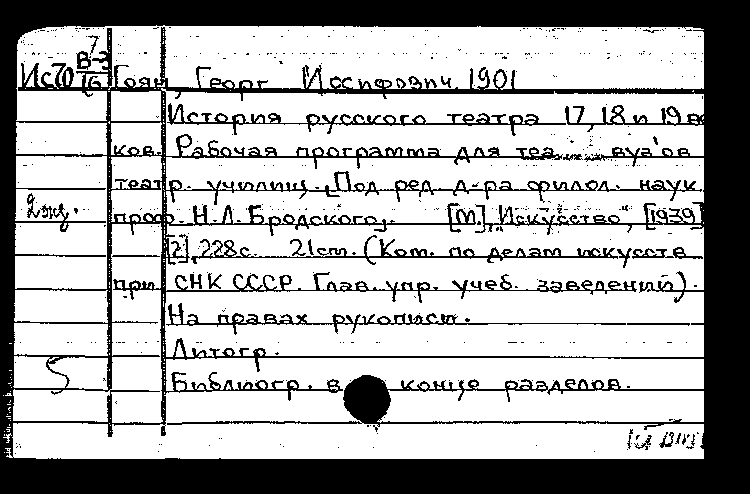 7
Ис70 В-3 Гоян, Георг Иосифович. 1901
16
История русского театра 17, 18 и 19 ве
ков. Рабочая программа для теа вуз'ов
театр. училищ. Под ред. д-ра филол. наук
2 экз. проф. Н.Л. Бродского. [М.], "Искусство", [1939]
[2], 228 с. 21 см. (Ком. по делам искусств
при СНК СССР. Глав. упр. учеб. заведений).
На правах рукописи.
Литогр.
5 Библиогр. в конце разделов.